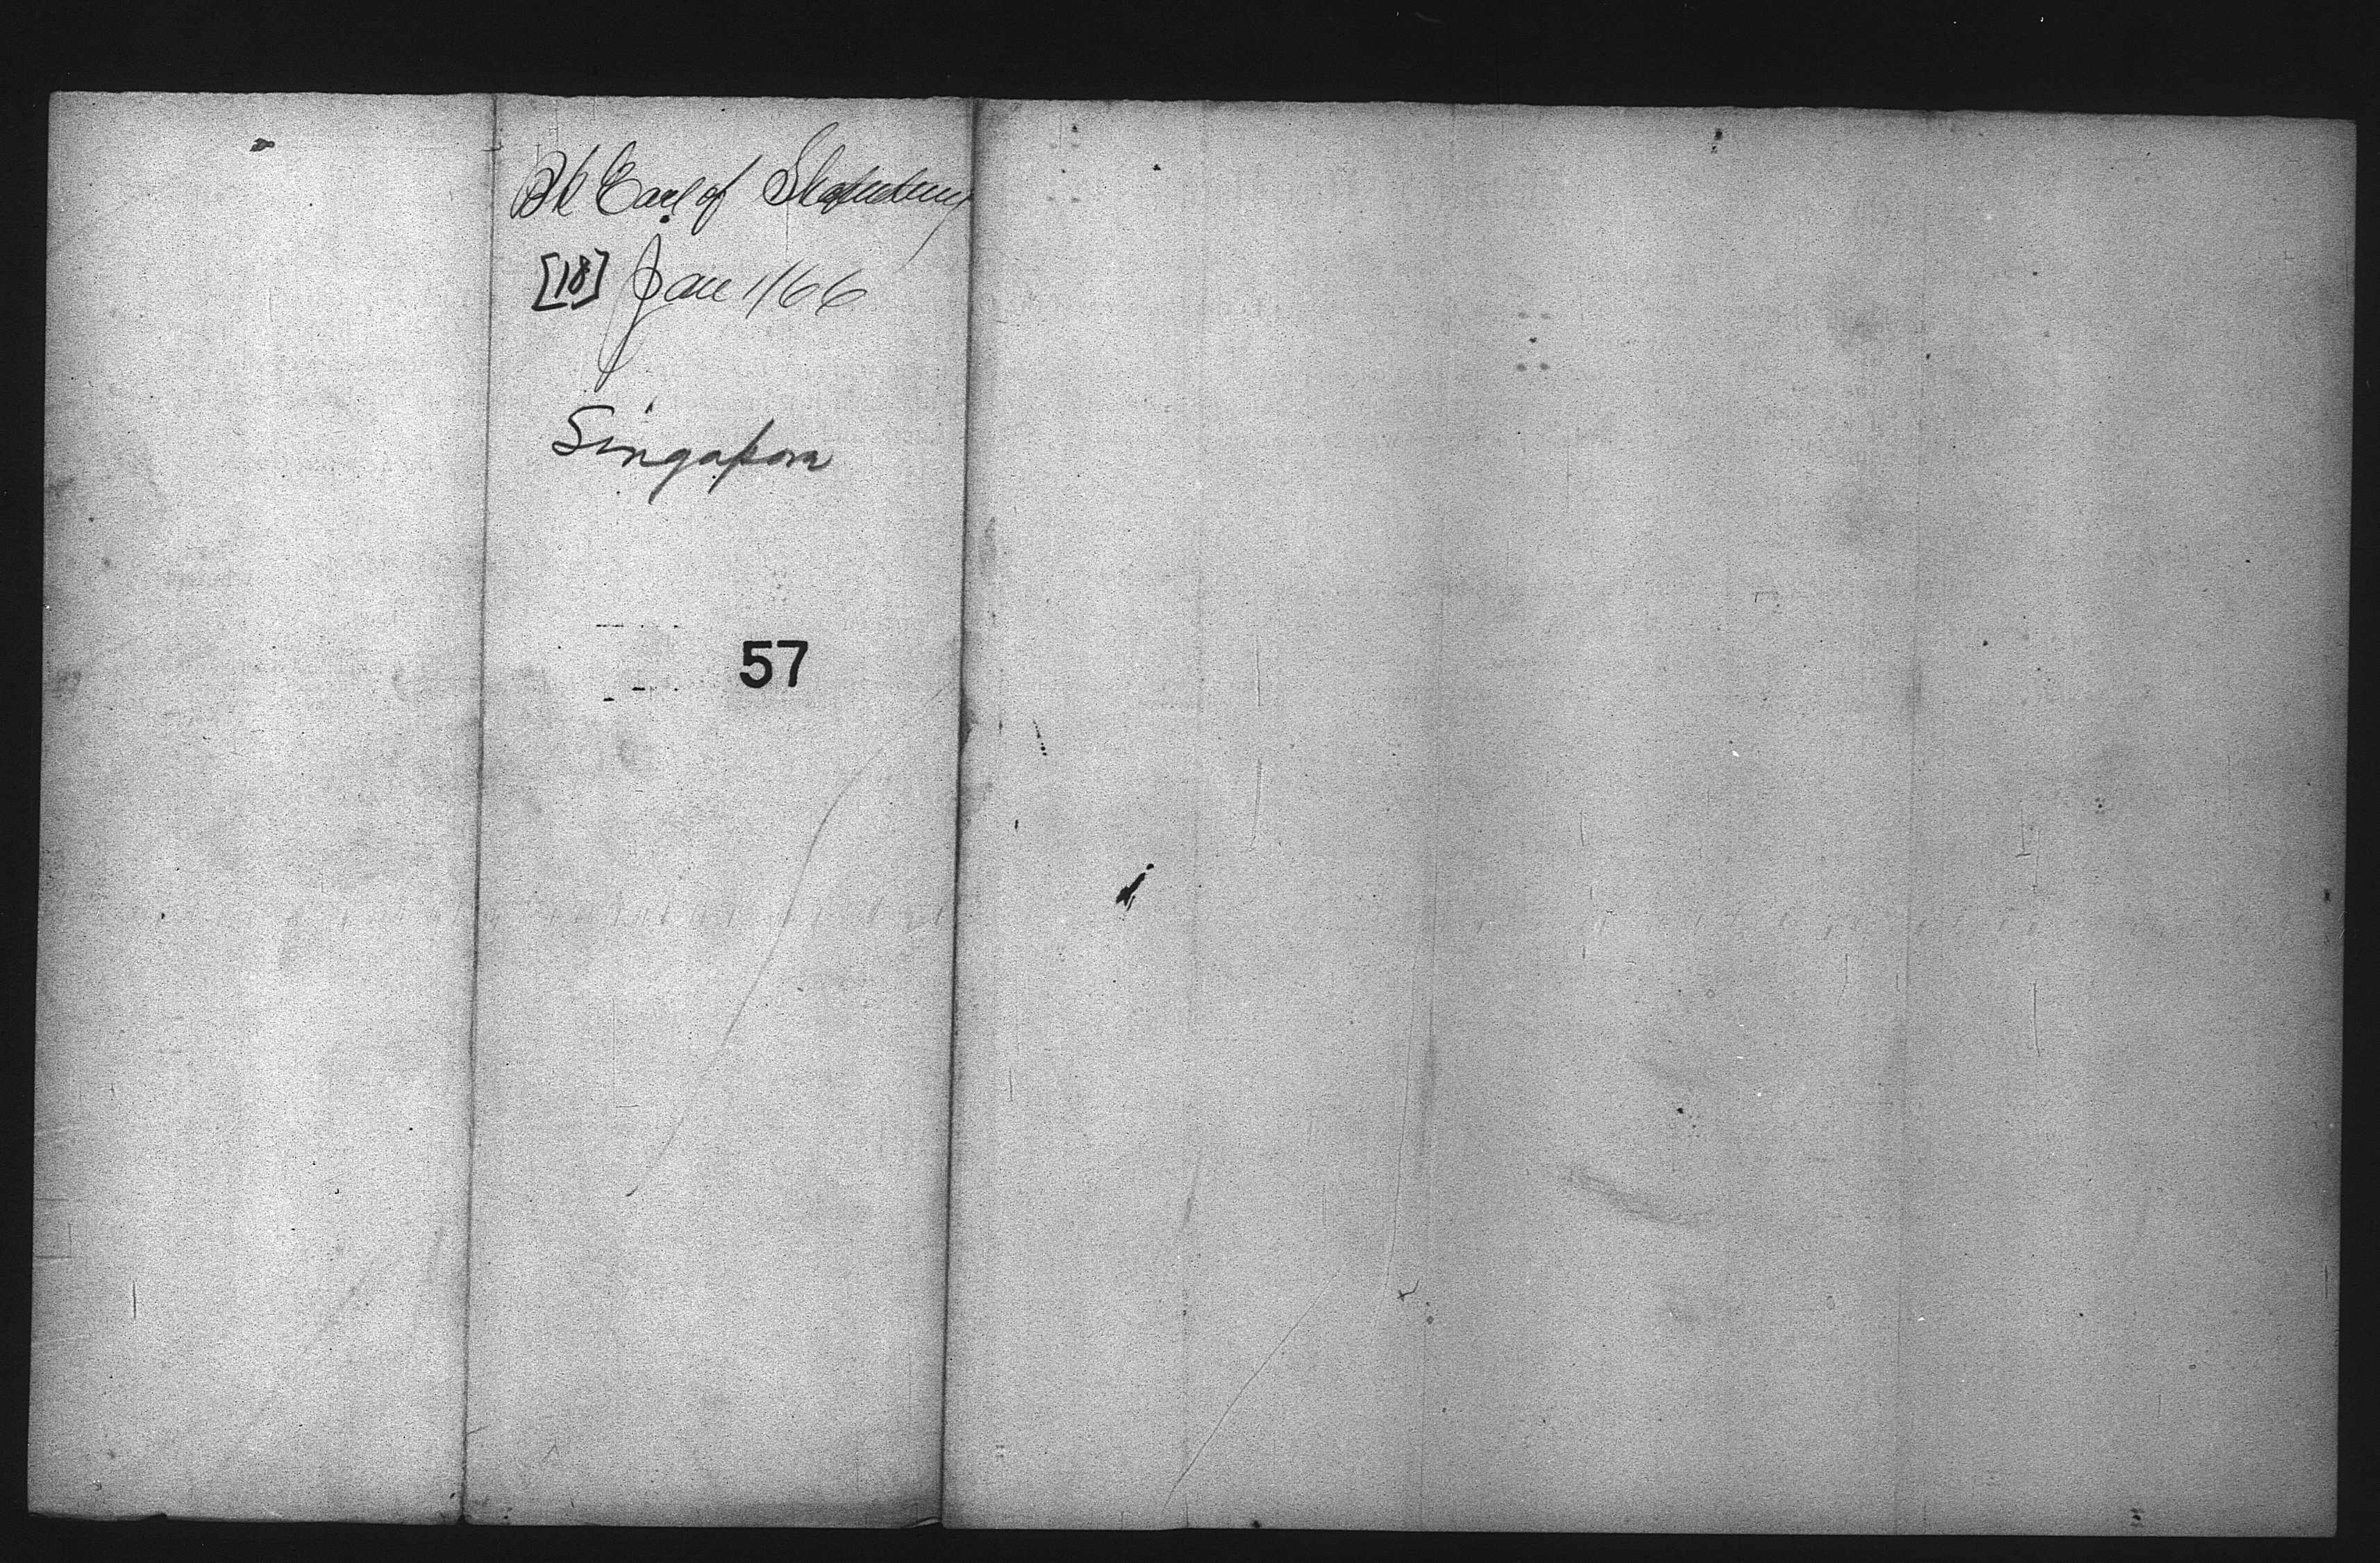 Bk Earl of Shaftesbury
[18] Jan 1/66
Singapore
57